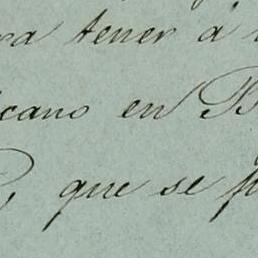 ra tener á
cano en B
que se